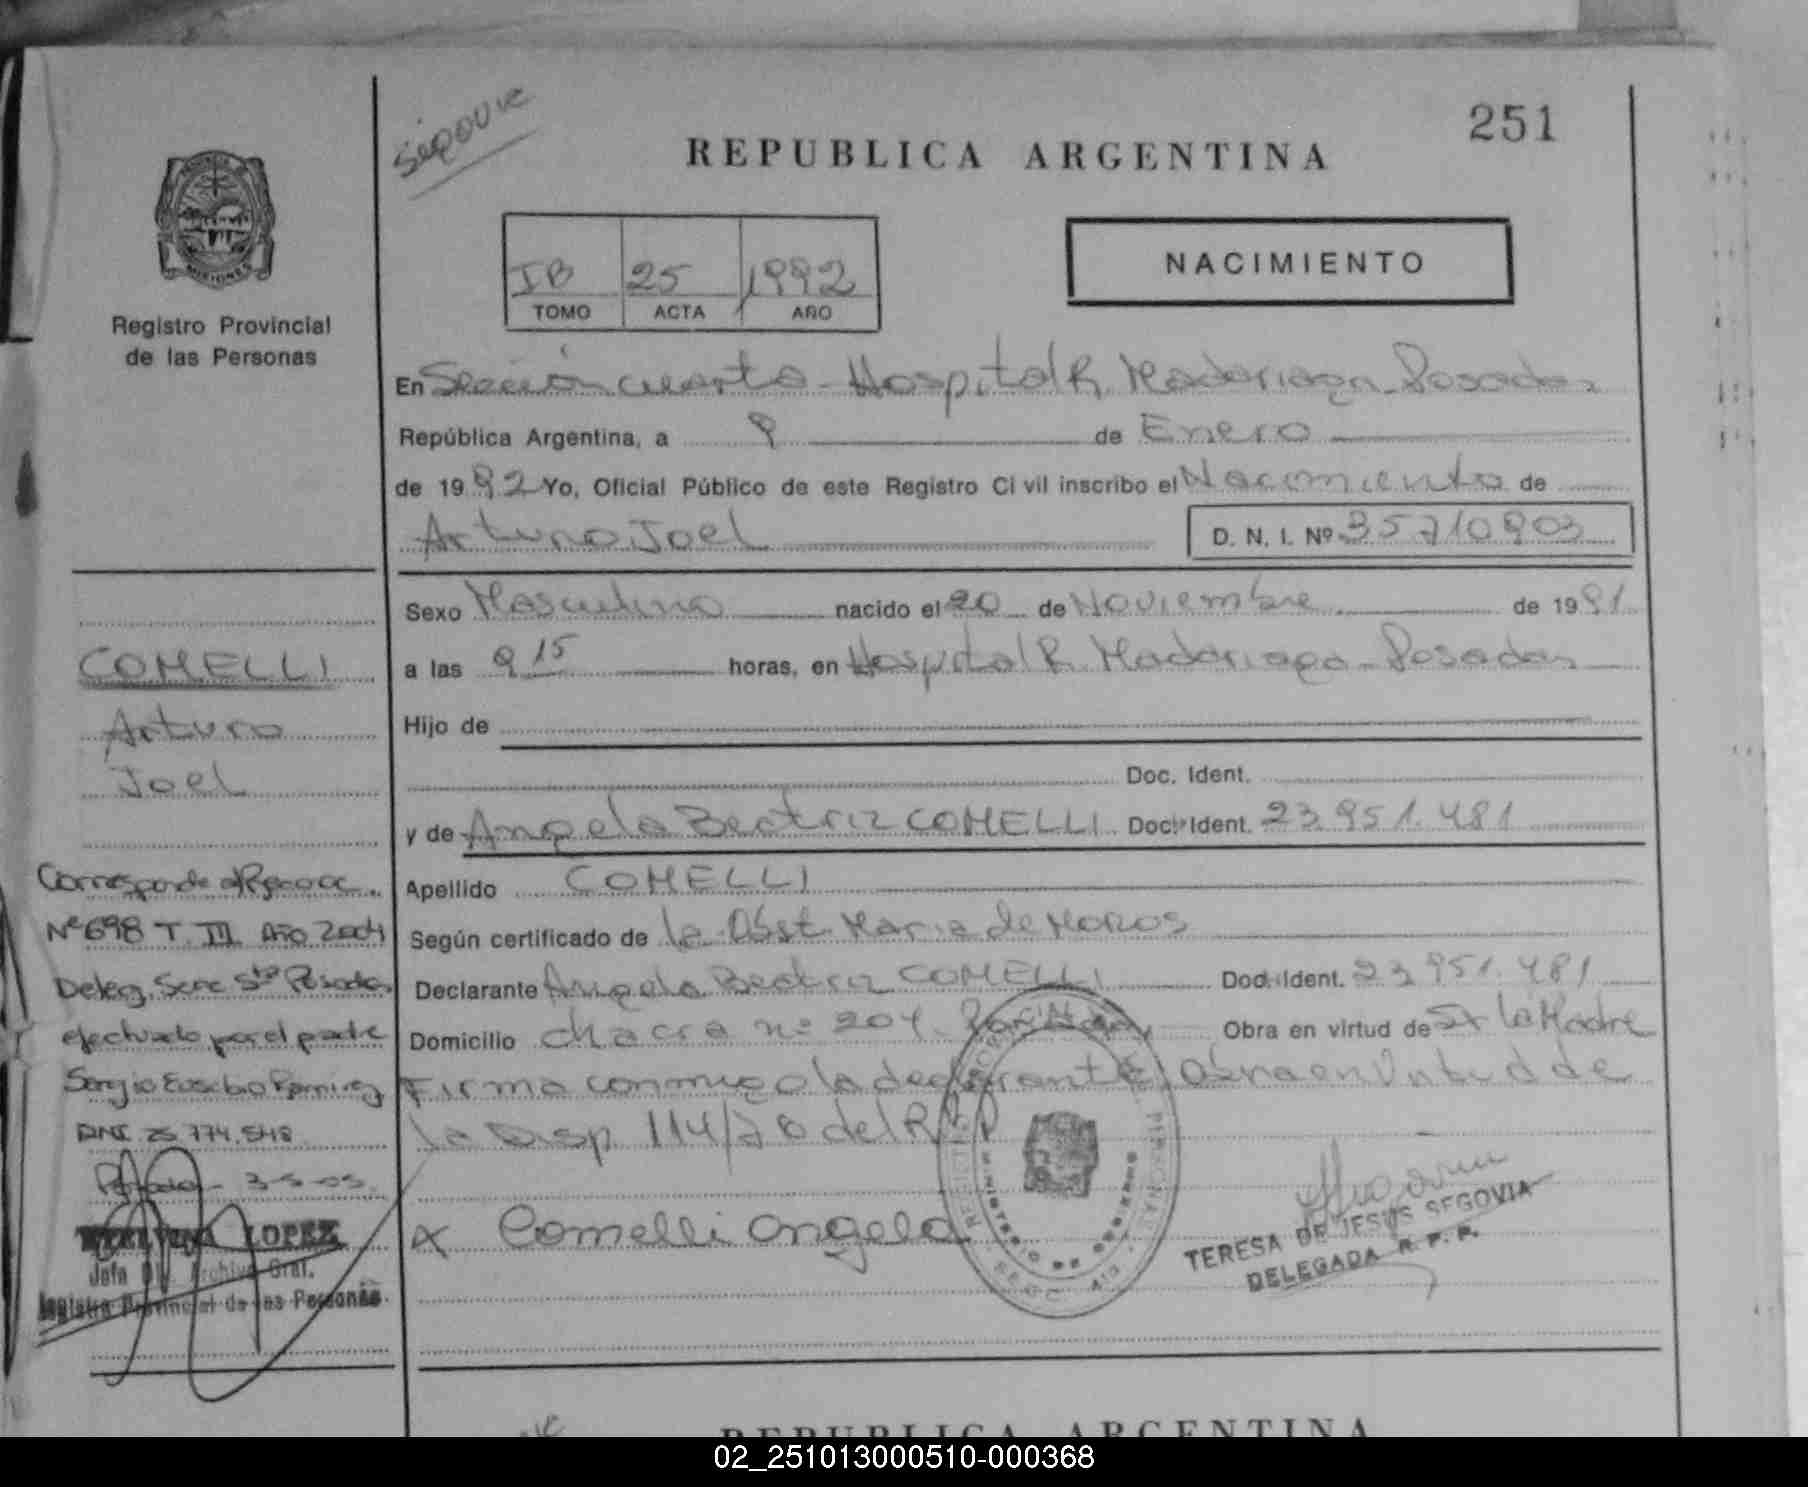 251
REPUBLICA ARGENTINA
MISIONES
Registro Provincial
de las Personas
IB 25 1992
TOMO ACTA AÑO
NACIMIENTO
En Sección cuarta - Hospital R. Madariaga - Posadas
República Argentina, a 9 de Enero
de 1992 Yo, Oficial Público de este Registro Civil inscribo el Nacimiento de
Arturo Joel D. N. I. Nº 35710903
Sexo Masculino nacido el 20 de Noviembre de 1991
a las 9 15 horas, en Hospital R. Madariaga - Posadas
Hijo de
Doc. Ident.
y de Angela Beatriz COMELLI Doc. Ident. 23.951.481
Apellido COMELLI
Según certificado de la Obst. Maria de Moros
Declarante Angela Beatriz COMELLI Doc. Ident. 23.951.481
Domicilio chacra nº 204. Obra en virtud de ser la Madre
Firma conmigo la declarante, Obra en Virtud de
la Disp. 114/70 del R.P.P
x Comelli Angela
TERESA DE JESUS SEGOVIA
DELEGADA R. P. P.
COMELLI
Arturo
Joel
Corresponde a Reconoc.
Nº 698 T. III Año 2004
Deleg. Secc 5ta Posadas
efectuado por el padre
Sergio Eusebio Ramirez
DNI. 25.774.548
Posadas - 3-5-05
LOPEZ
Jefa Archivo Gral.
Registro Provincial de las Personas
REPUBLICA ARGENTINA
02_251013000510-000368